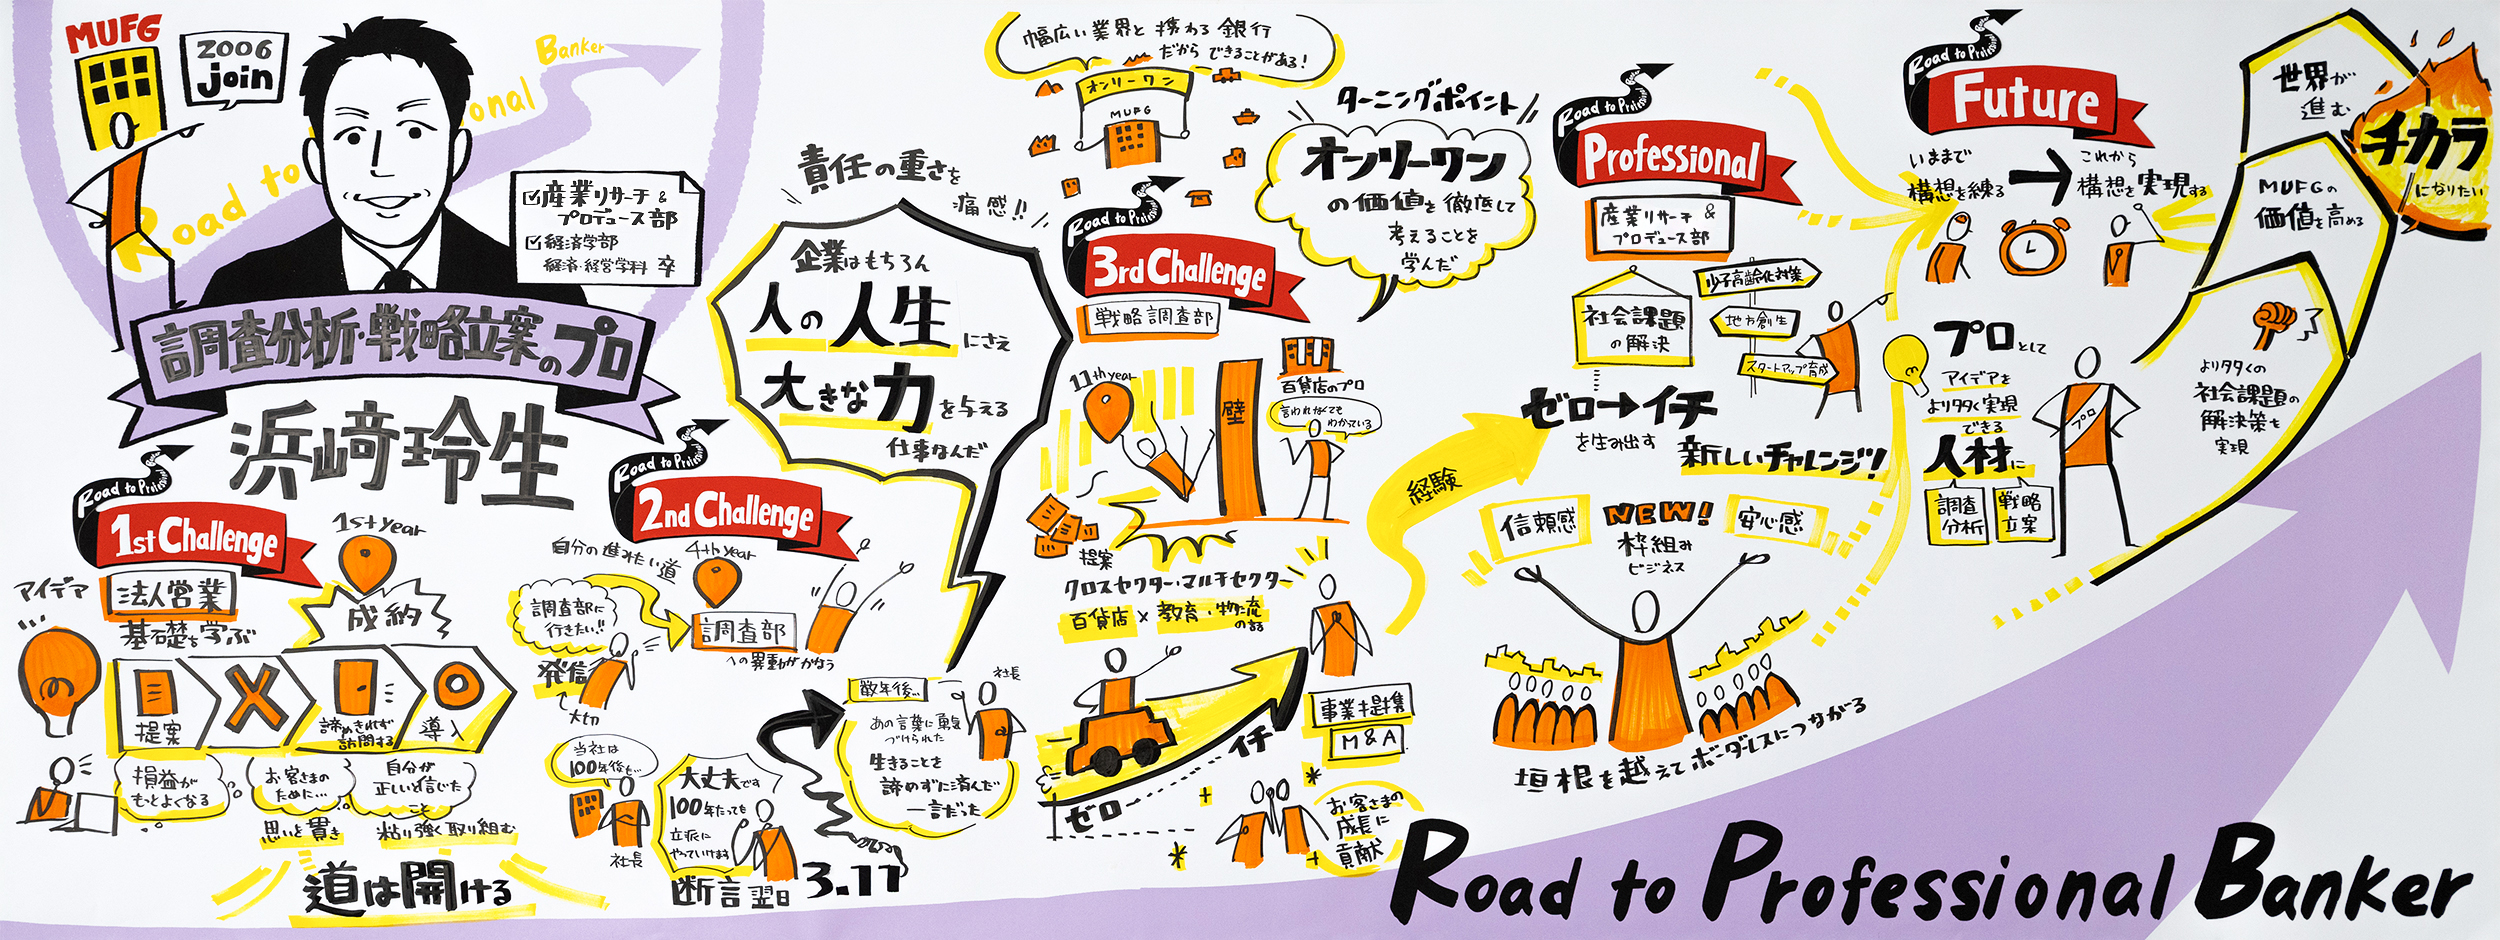 MUFG
2006
join
Road to
Professional
Banker
産業リサーチ &
プロデュース部
経済学部
経済・経営学科 卒
調査分析・戦略立案のプロ
浜﨑玲生
Road to Profession
1st Challenge
アイデア
法人営業
基礎を学ぶ
1st year
成約
提案
諦めきれず
訪問する
導入
損益が
もっとよくなる
お客さまの
ために…
自分が
正しいと信じた
こと
思いを貫き
粘り強く取り組む
道は開ける
Road to Profession
2nd Challenge
自分の進みたい道
4th year
調査部に
行きたい!!
発信
大切
調査部
への異動がかなう
当社は
100年後も…
社長
大丈夫です
100年たっても
立派に
やっていけます
断言 翌日 3.11
数年後…
社長
あの言葉に勇気
づけられた
生きることを
諦めずに済んだ
一言だった
責任の重さを
痛感!!
企業はもちろん
人の人生にさえ
大きな力を与える
仕事なんだ
幅広い業界と携わる銀行
だからできることがある!
オンリーワン
MUFG
Road to Profession
3rd Challenge
戦略調査部
ターニングポイント
オンリーワン
の価値を徹底して
考えることを
学んだ
11th year
壁
百貨店のプロ
言われなくても
わかっている
提案
クロスセクター・マルチセクター
百貨店×教育・物流
の話
ゼロ
イチ
事業提携
M&A
お客さまの
成長に
貢献
経験
Road to Profession
Professional
産業リサーチ &
プロデュース部
社会課題
の解決
少子高齢化対策
地方創生
スタートアップ育成
ゼロ→イチ
を生み出す
新しいチャレンジ!
信頼感
NEW!
枠組み
ビジネス
安心感
垣根を越えてボーダーレスにつながる
Road to Profession
Future
いままで
構想を練る
これから
構想を実現する
プロとして
アイデアを
より多く実現
できる
人材に
調査
分析
戦略
立案
プロ
より多くの
社会課題の
解決策を
実現
MUFGの
価値を高める
世界が
進む
チカラ
になりたい
Road to Professional Banker